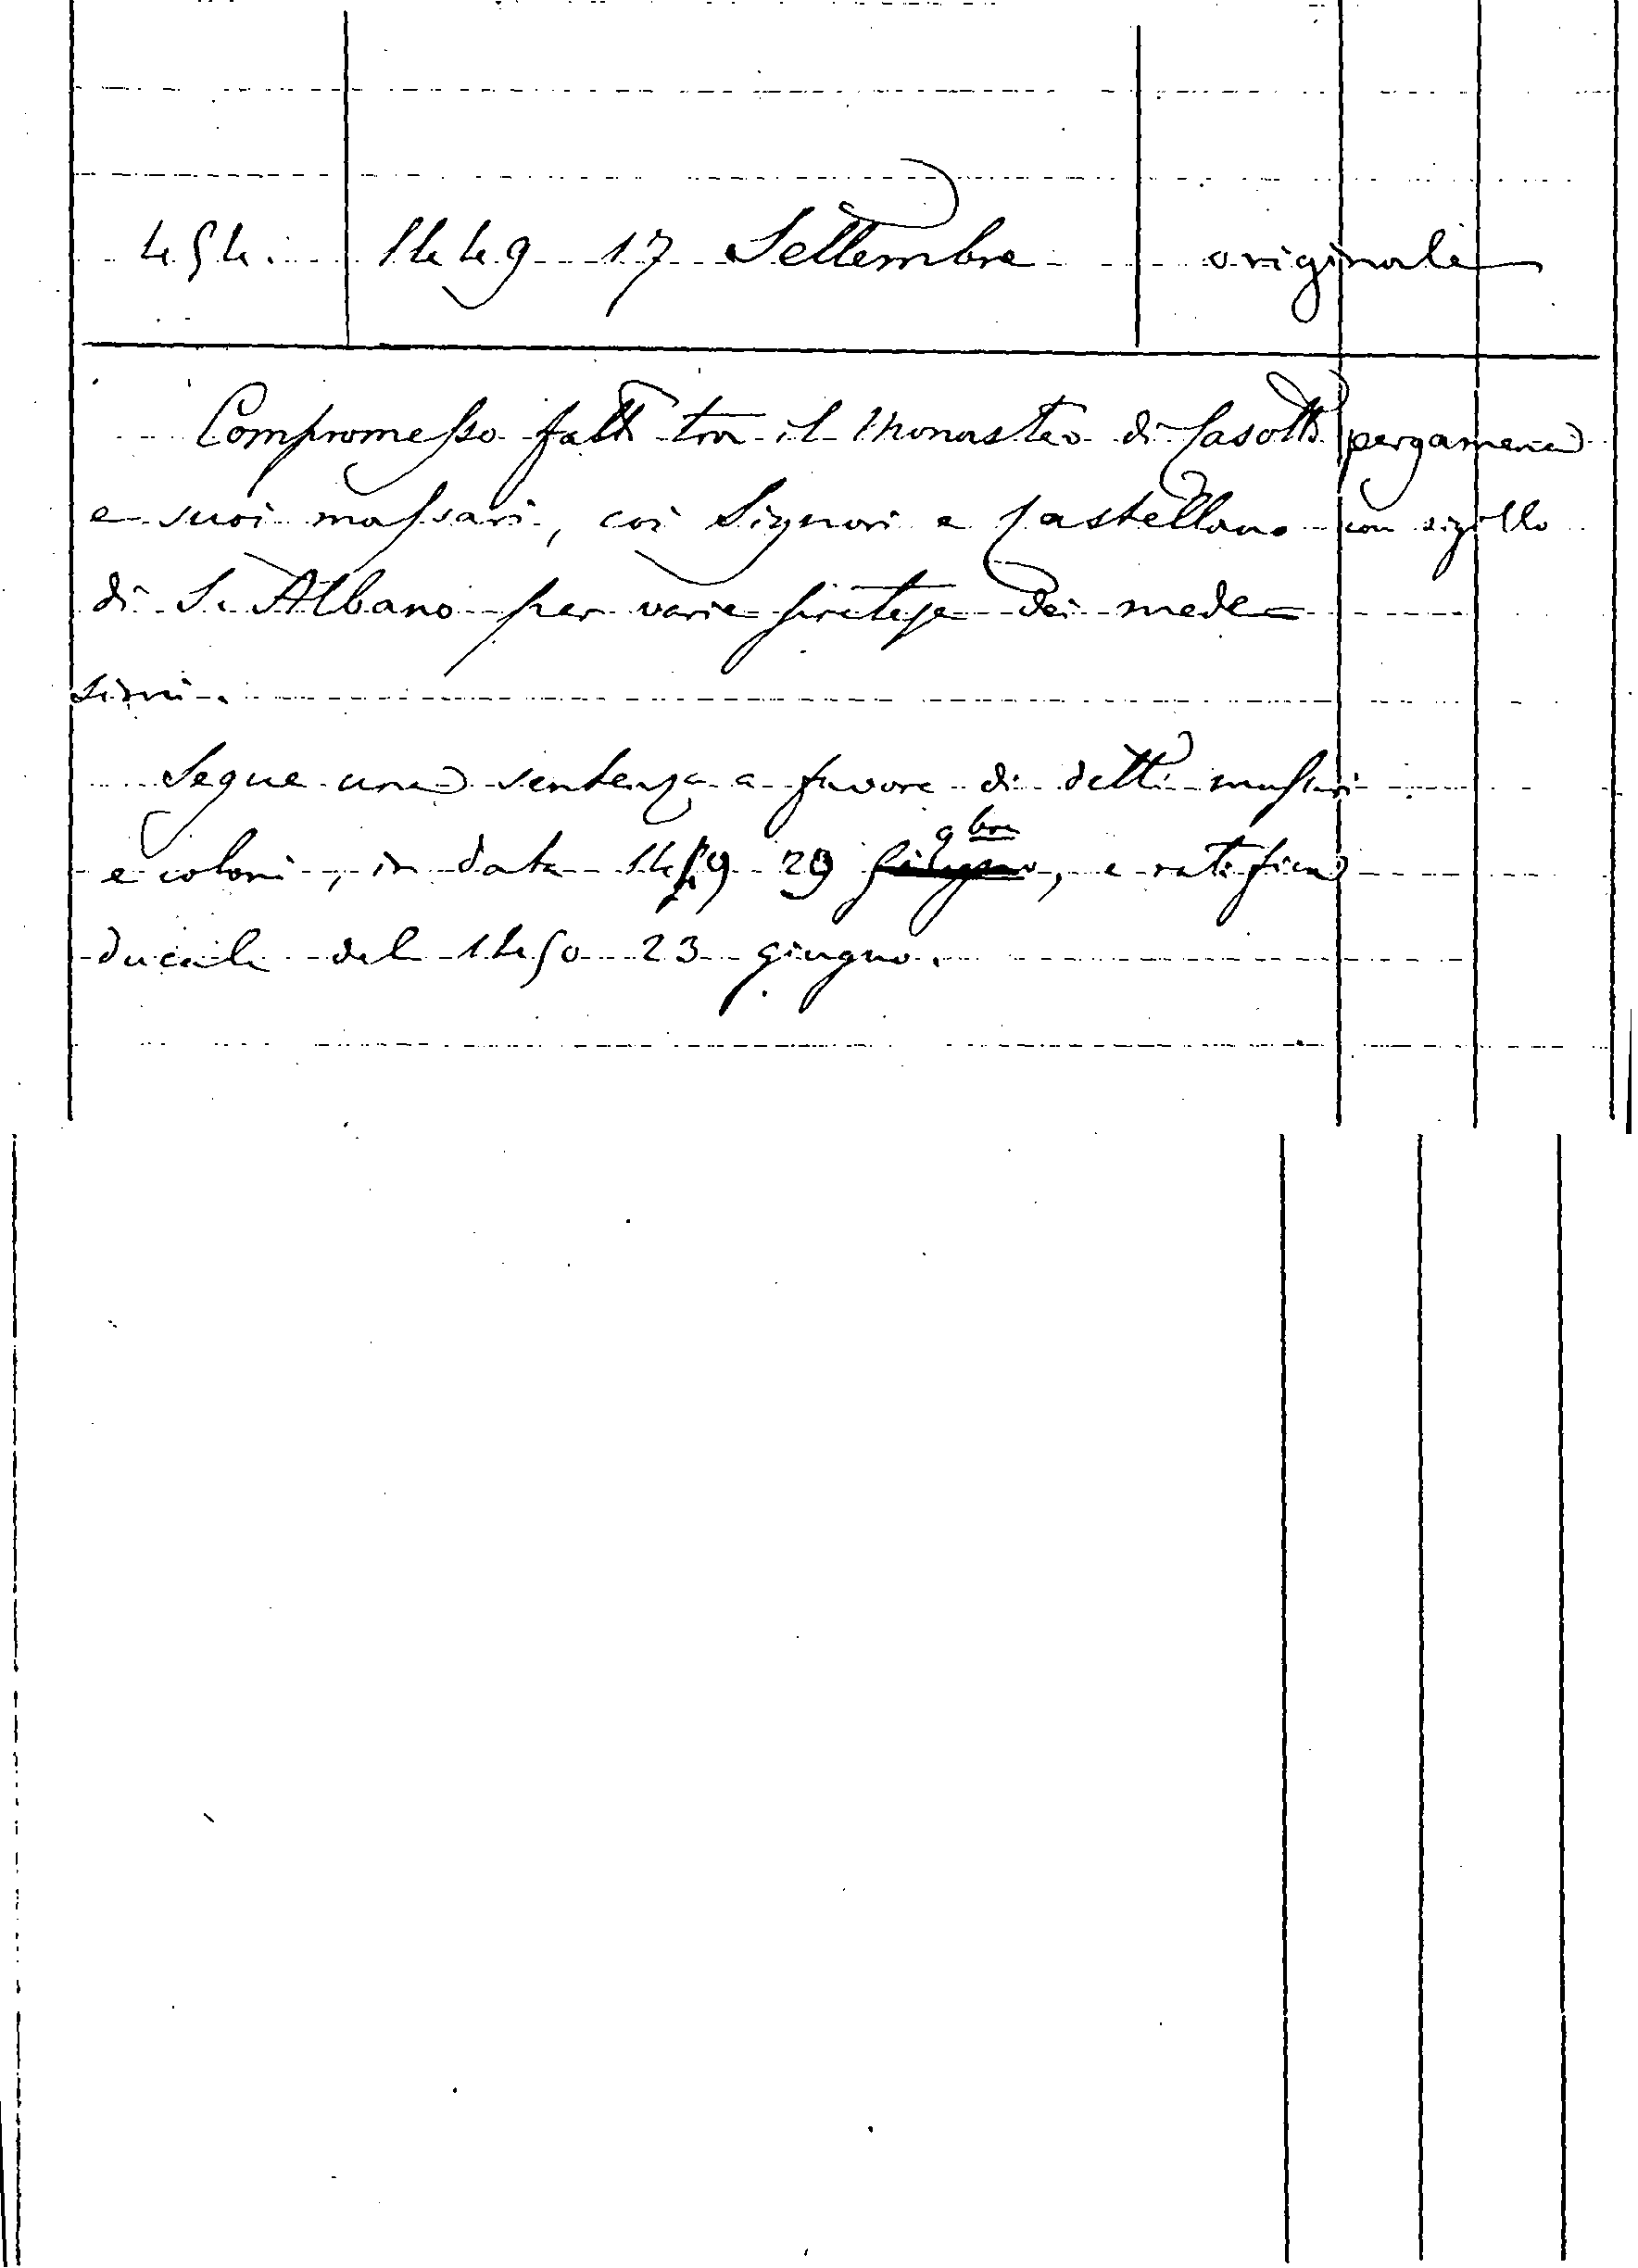 454. 1449 17 Settembre originale
Compromesso fatto tra il Monastero di Casotto pergamena
e suoi massari, coi Signori e Castellano con sigillo
di S. Albano per varie pretese dei mede=
simi.
Segue una sentenza a favore di detti massari
9bre
e coloni, in data 1449 29 giugno, e ratifica
ducale del 1450 23 giugno.